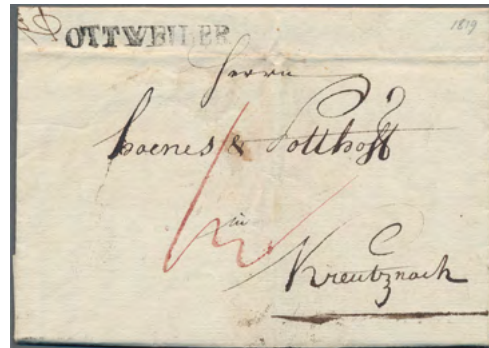 OTTWEILER
1819
Herrn
Coenes & Potthoff
in
Kreutznach